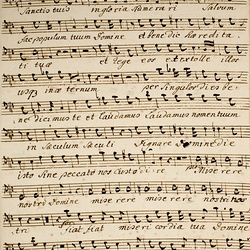 Sanctis tuis in gloria numerari Salvum
fac populum tuum Domine et benedic hæredita
ti tuæ et rege eos et extolle illos
usq in æternum per Singulos dies be
nedicimus te et Laudamus Laudamus nomen tuum
in Sæculum Sæculi Dignare Domine die
isto Sine peccato nos Custodire Miserere
nostri Domine miserere miserere nostri nos
tri fiat fiat misericordia tua Domine